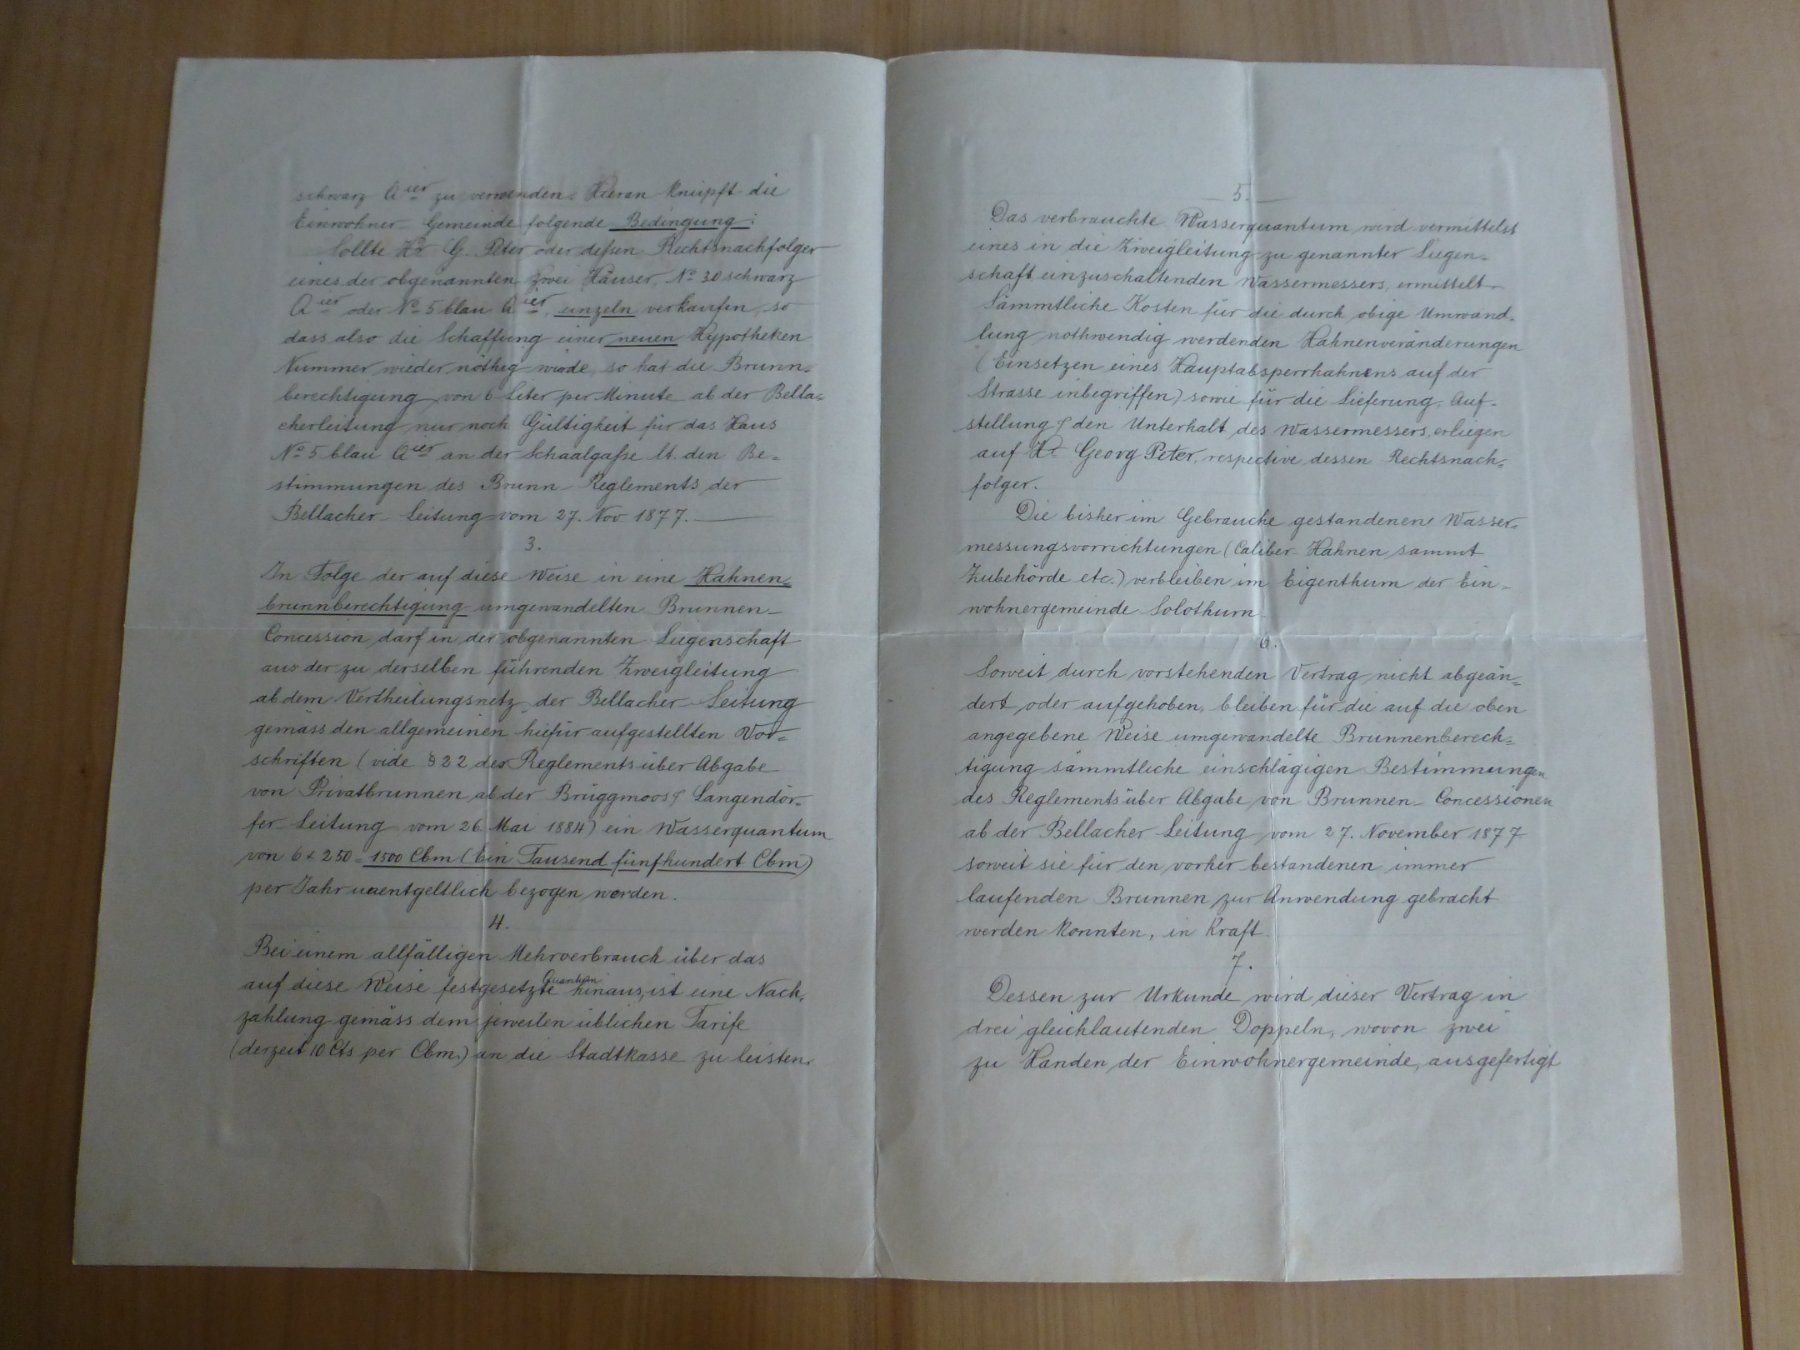 schwarz Qier zu verwenden. Hieran knüpft die
Einwohner-Gemeinde folgende Bedingung:
Sollte Hr G. Peter oder deßen Rechtsnachfolger
eines der obgenannten zwei Häuser, No 30 schwarz
Qier oder No 5 blau Qier, einzeln verkaufen, so
dass also die Schaffung einer neuen Hypotheken
Nummer wieder nöthig würde, so hat die Brunn=
berechtigung von 6 Liter per Minute ab der Bella=
cherleitung nur noch Gültigkeit für das Haus
No 5 blau Qier an der Schaalgaße lt. den Be=
stimmungen des Brunn-Reglements der
Bellacher-Leitung vom 27. Nov 1877.
3.
In Folge der auf diese Weise in eine Hahnen=
brunnberechtigung umgewandelten Brunnen-
Concession darf in der obgenannten Liegenschaft
aus der zu derselben führenden Zweigleitung
ab dem Vertheilungsnetz der Bellacher-Leitung
gemäss den allgemeinen hiefür aufgestellten Vor=
schriften (vide § 22 des Reglements über Abgabe
von Privatbrunnen ab der Brüggmoos & Langendör-
fer Leitung vom 26. Mai 1884) ein Wasserquantum
von 6 x 250 = 1500 Cbm (Ein Tausend fünfhundert Cbm)
per Jahr unentgeltlich bezogen werden.
4.
Bei einem allfälligen Mehrverbrauch über das
auf diese Weise festgesetzte Quantum hinaus, ist eine Nach=
zahlung gemäss dem jeweilen üblichen Tarife
(derzeit 10 Cts per Cbm.) an die Stadtkasse zu leisten.
5.
Das verbrauchte Wasserquantum wird vermittelst
eines in die Zweigleitung zu genannter Liegen=
schaft einzuschaltenden Wassermessers, ermittelt.
Sämmtliche Kosten für die durch obige Umwand-
lung nothwendig werdenden Hahnenveränderungen
(Einsetzen eines Hauptabsperrhahnens auf der
Strasse inbegriffen) sowie für die Lieferung, Auf-
stellung & den Unterhalt des Wassermessers, erliegen
auf Hr Georg Peter, respective dessen Rechtsnach=
folger.
Die bisher im Gebrauche gestandenen Wasser=
messungsvorrichtungen (Caliber-Hahnen sammt
Zubehörde etc.) verbleiben im Eigenthum der Ein-
wohnergemeinde Solothurn.
6.
Soweit durch vorstehenden Vertrag nicht abgeän=
dert oder aufgehoben, bleiben für die auf die oben
angegebene Weise umgewandelte Brunnenberech=
tigung sämmtliche einschlägigen Bestimmungen
des Reglements über Abgabe von Brunnen-Concessionen
ab der Bellacher Leitung vom 27. November 1877
soweit sie für den vorher bestandenen immer
laufenden Brunnen zur Anwendung gebracht
werden konnten, in Kraft.
7.
Dessen zur Urkunde wird dieser Vertrag in
drei gleichlautenden Doppeln, wovon zwei
zu Handen der Einwohnergemeinde, ausgefertigt